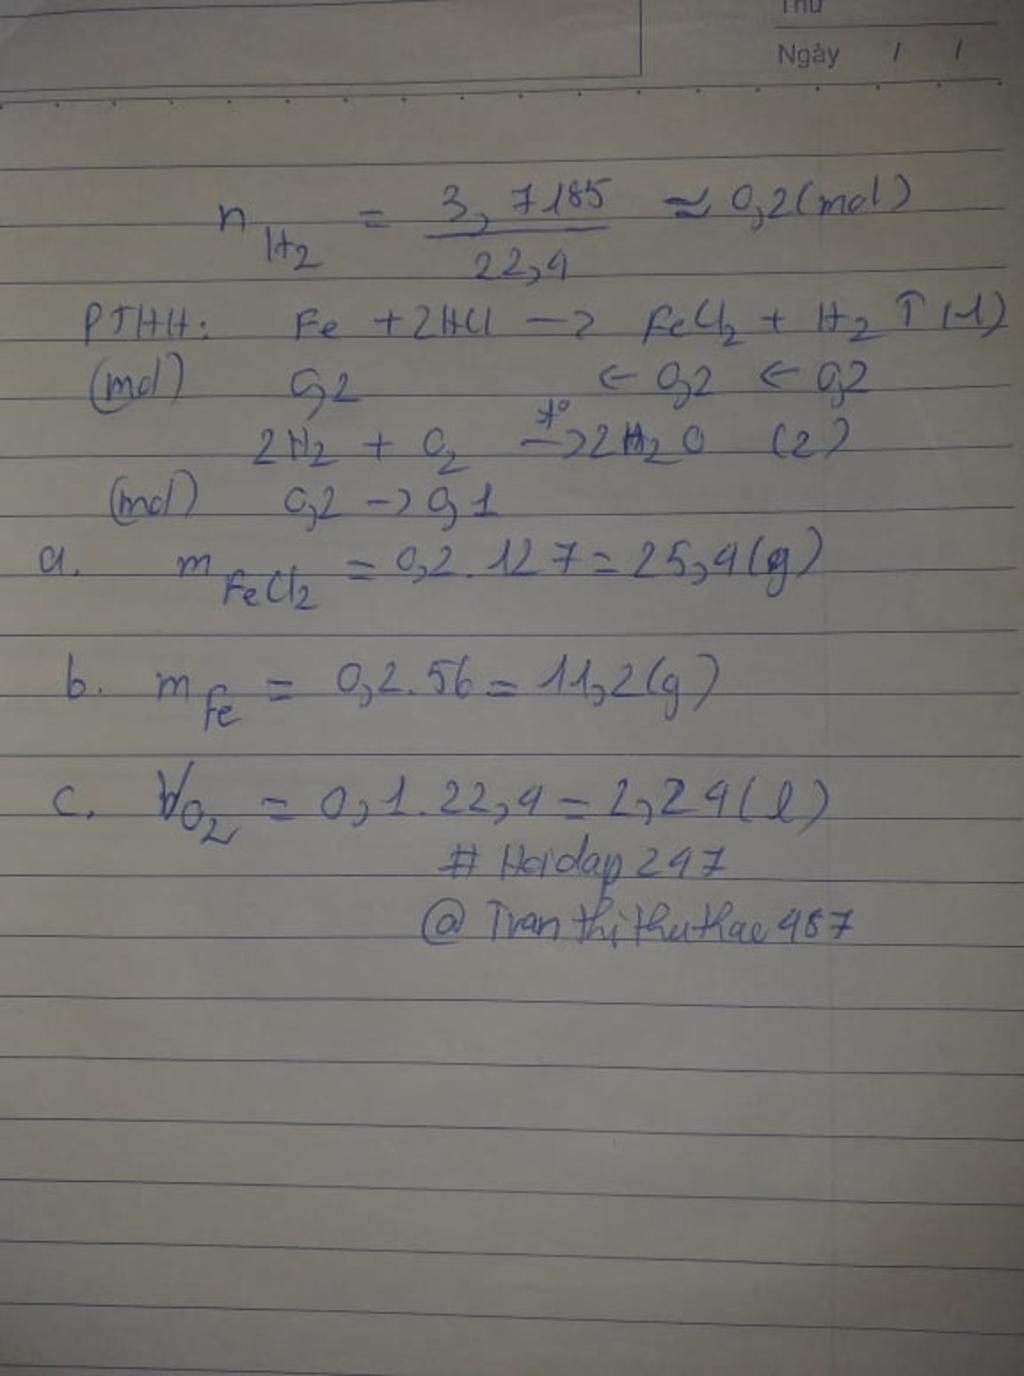 Thứ
Ngày / /
n H₂ = 3,7185 / 22,4 ≃ 0,2 (mol)
PTHH: Fe + 2HCl -> FeCl₂ + H₂ ↑ (1)
(mol) 0,2 <- 0,2 <- 0,2
2H₂ + O₂ -t°-> 2H₂O (2)
(mol) 0,2 -> 0,1
a. m FeCl₂ = 0,2 . 127 = 25,4 (g)
b. m Fe = 0,2 . 56 = 11,2 (g)
c. V O₂ = 0,1 . 22,4 = 2,24 (l)
# Hoidap 247
@ Tranthithuthao487